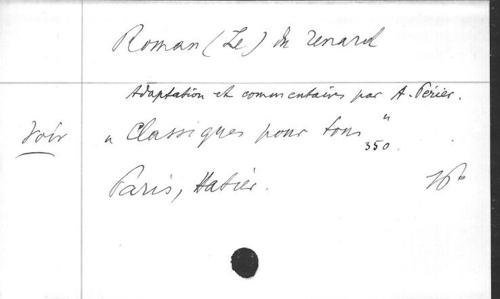 Roman (Le) du renard
Adaptation et commentaires par A. Périer.
Voir
"Classiques pour tous" 350.
Paris, Hatier. 16°